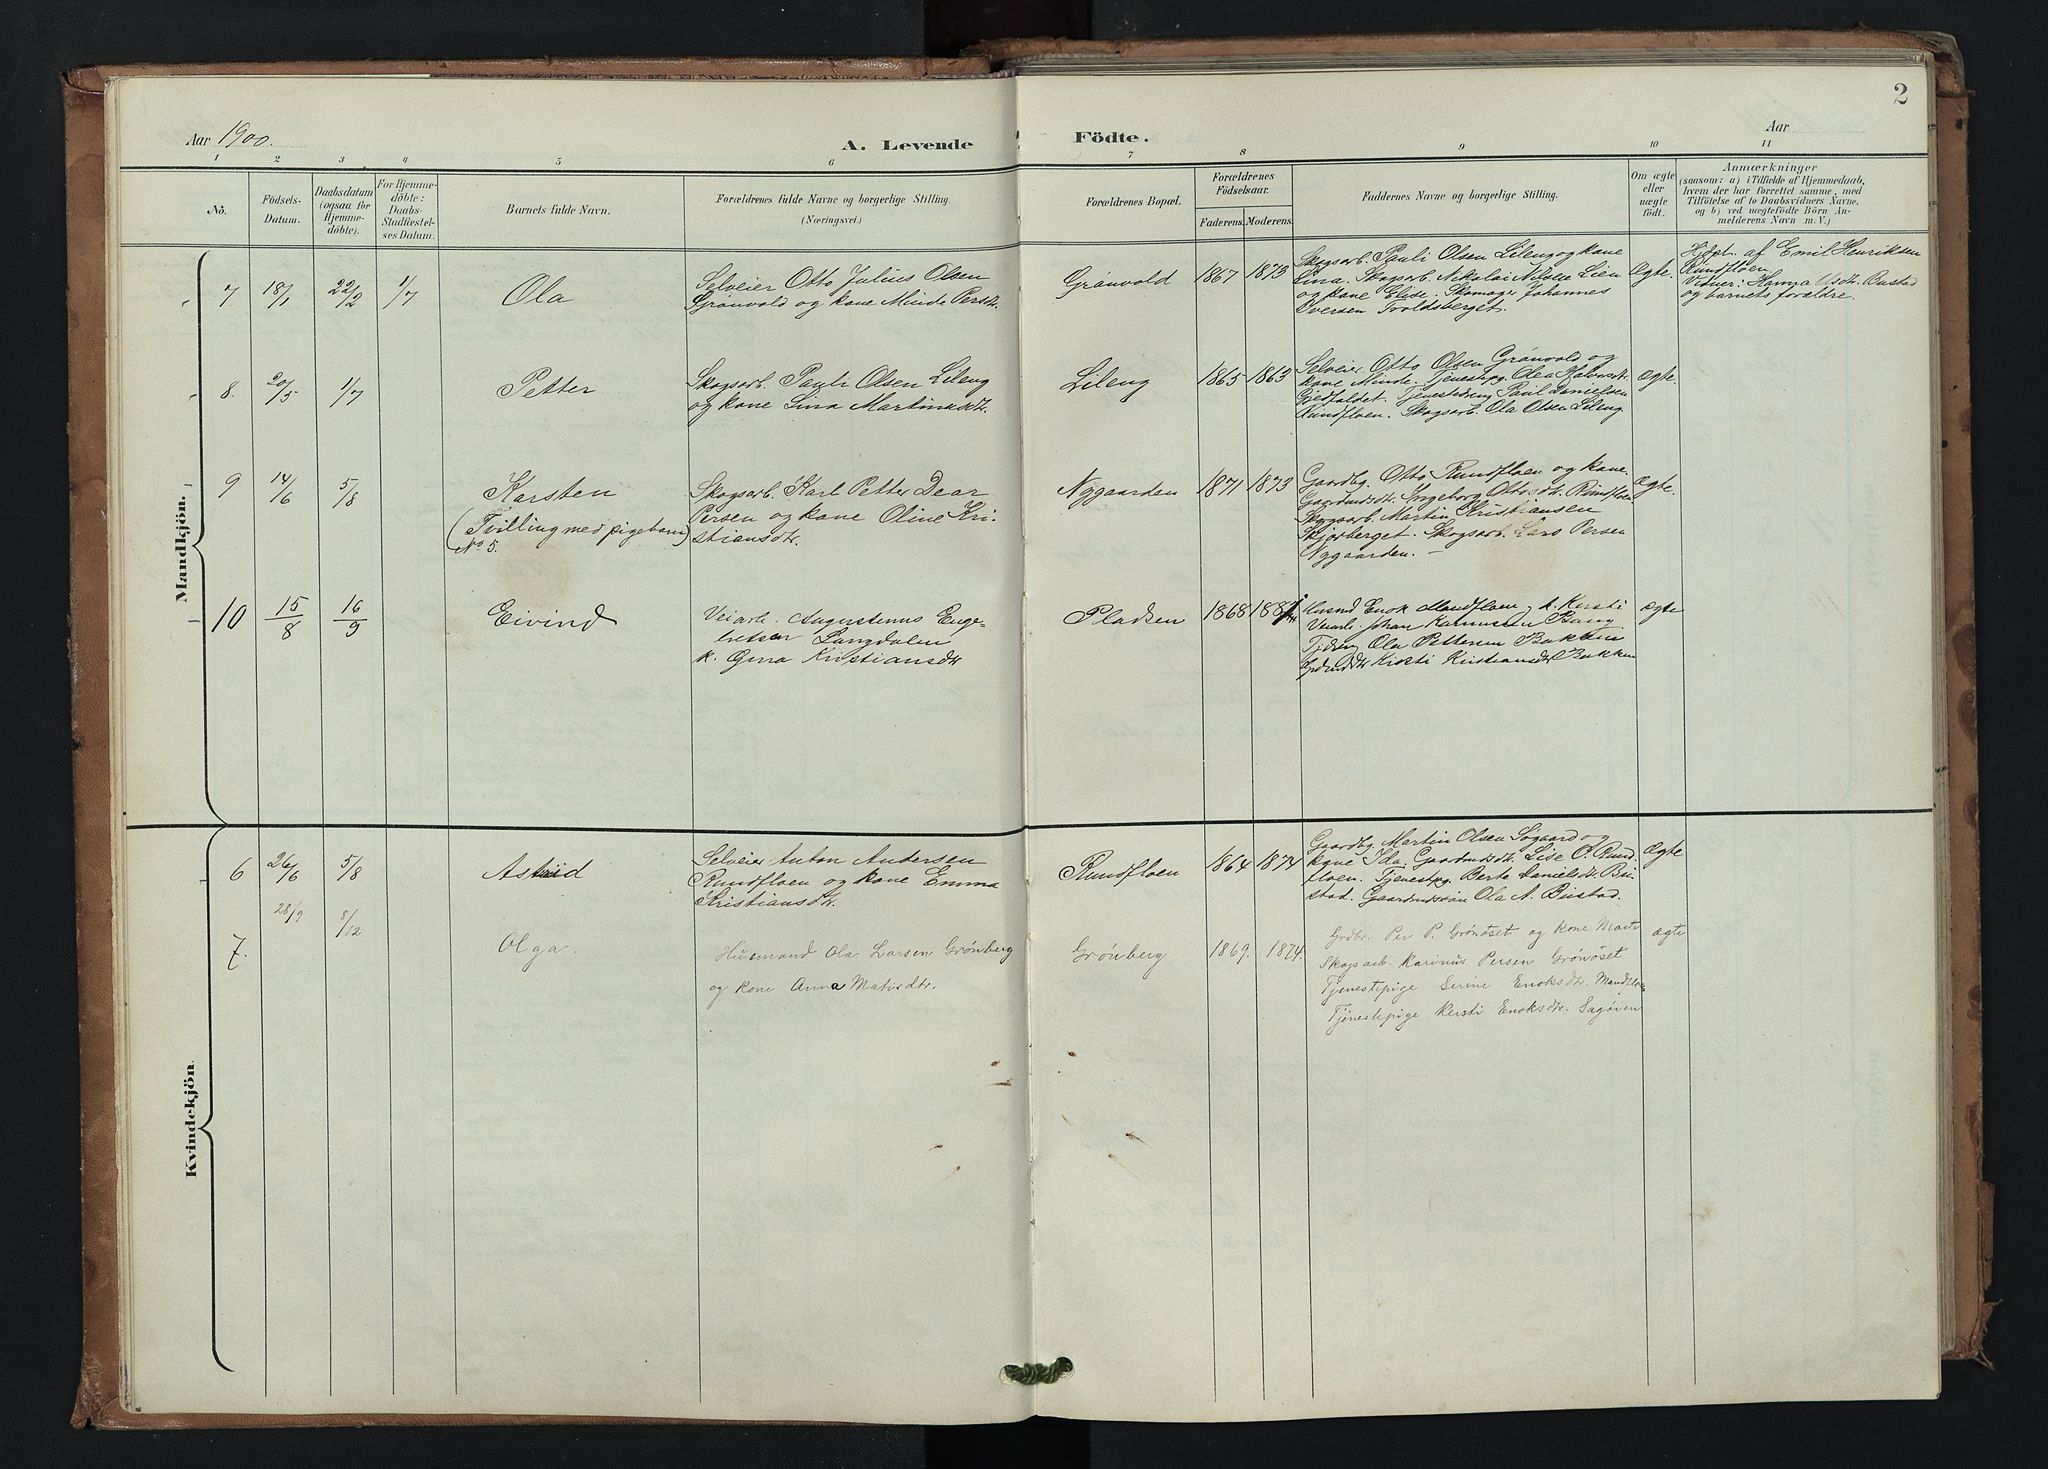 2
Aar 1900.
A. Levende Födte.
Aar
1 2 3 4 5 6 7 8 9 10 11
No.
Födsels-Datum.
Daabsdatum (ogsaa for Hjemme-döbte).
For Hjemme-döbte: Daabs-Stadfæstel-ses Datum.
Barnets fulde Navn.
Forældrenes fulde Navne og borgerlige Stilling.
(Næringsvei.)
Forældrenes Bopæl.
Forældrenes Födselsaar.
Faderens. Moderens.
Faddernes Navne og borgerlige Stilling.
Om ægte eller uægte födt.
Anmærkninger
(saasom: a) i Tilfælde af Hjemmedaab,
hvem der har forrettet samme, med
Tilföielse af to Daabsvidners Navne,
og b) ved uægtefödte Börn An-
melderens Navn m. V.)
Mandkjön.
7 18/1 22/2 1/7 Ola
Selveier Otto Julius Olsen
Grønvold og kone Minde Persdtr.
Grønvold 1867 1873
Skogsarb. Pauli Olsen Lileng og kone
Lina. Skogsarb. Nikolai Nilsen Lien
og kone Elise. Skomager Johannes
Iversen Troldsberget.
Ægte.
Hjdt. af Emil Henriksen
Rundfloen.
Vidner: Hanna Olsdtr. Bustad
og barnets forældre.
8. 20/5 1/7 Petter
Skogsarb. Pauli Olsen Lileng
og kone Lina Martinusdtr.
Lileng 1865 1863
Selveier Otto Olsen Grønvold og
kone Minde. Tjenestepg. Olea Halvorsdtr.
Gjetfaldet. Tjenestedreng Paul Danielsen
Rundfloen. Skogsarb. Ola Olsen Lileng
Ægte.
9 14/6 5/8 Karsten
(Tvilling med pigebarn
No 5.)
Skogsarb. Karl Petter Dear
Persen og kone Oline Kri-
stiansdtr.
Nygaarden 1871 1873
Gaardbg. Otto Rundfloen og kone.
Gaardmdsdtr. Ingeborg Ottosdtr. Rundfloen
Skogsarb. Martin Kristiansen
Skjørberget. Skogsarb. Lars Persen
Nygaarden. —
Ægte.
10 15/8 16/9 Eivind
Veiarb. Augustenus Enge-
bretsen Langdalen
k. Gina Kristiansdtr
Pladsen 1868
Husmd Enok Mandfloen, k. Kersti
Veiarb. Johan Rasmussen Bang
Ola Pettersen Bakken
Kirsti Kristiansdtr Bakken
ægte
Kvindekjön.
6 26/6 5/8 Astrid
Selveier Anton Andersen
Rundfloen og kone Emma
Kristiansdtr.
Rundfloen 1864 1874
Gaardbg. Martin Olsen Søgaard og
kone Ida. Gaardmdsdtr. Lise O. Rund-
floen. Tjenestepg. Berte Danielsdtr. Bu-
stad. Gaardmdssøn Ola A. Bustad.
Ægte
7. 28/9 8/12 Olga.
Husmand Ola Larsen Grønberg
og kone Anna Matisdtr.
Grønberg 1869. 1874.
Grdbr. Per P. Grønøset og kone Marte
Skogsarb. Karinus Persen Grønøset
Tjenestepige Serine Enoksdtr. Mandfloen
Tjenestepige Kersti Enoksdtr. Sagøien
ægte